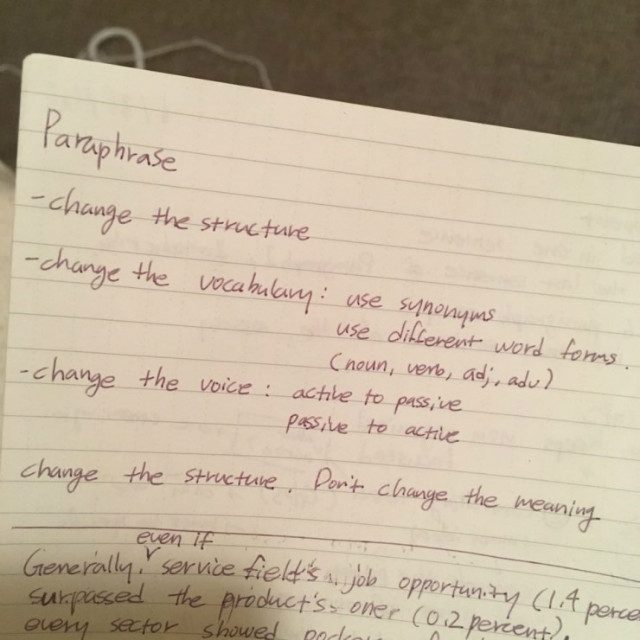 Paraphrase
- change the structure
- change the vocabulary : use synonyms
use different word forms.
(noun, verb, adj, adv)
- change the voice : active to passive
passive to active
change the structure. Don't change the meaning
even if
Generally. service field's job opportunity (1.4 perce
surpassed the product's oner (0.2 percent)
every sector showed